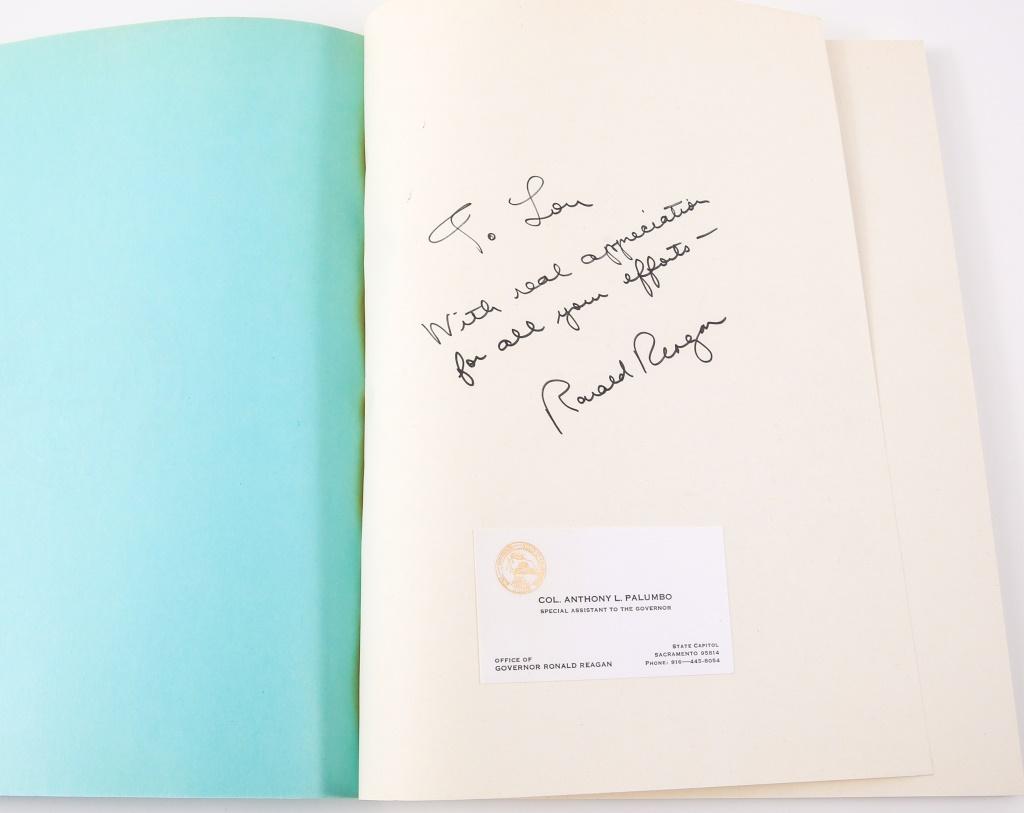 To Lou
With real appreciation
for all your efforts —
Ronald Reagan
COL. ANTHONY L. PALUMBO
SPECIAL ASSISTANT TO THE GOVERNOR
OFFICE OF
GOVERNOR RONALD REAGAN
STATE CAPITOL
SACRAMENTO 95814
PHONE: 916—445-8054